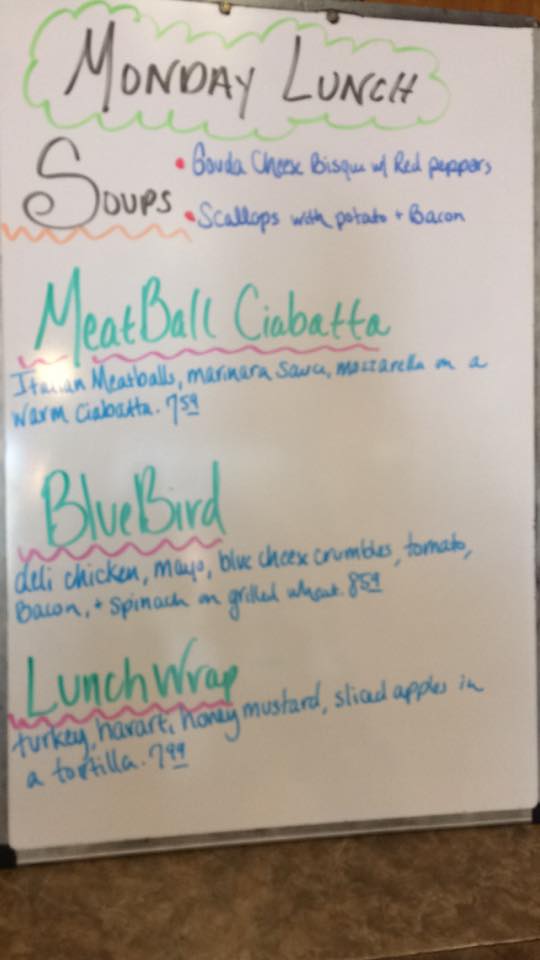 MONDAY LUNCH
SOUPS
• Gouda Cheese Bisque w/ Red peppers
• Scallops with potato + Bacon
MeatBall Ciabatta
Italian Meatballs, marinara sauce, mozzarella on a
warm Ciabatta. 7.59
BlueBird
deli chicken, mayo, blue cheese crumbles, tomato,
Bacon, + spinach on grilled wheat. 8.59
Lunch Wrap
turkey, havarti, honey mustard, sliced apples in
a tortilla. 7.99